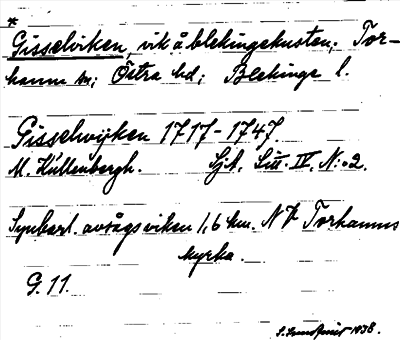 *
Gisselviken, vik å blekingekusten; Tor-
hamn sn; Östra hd; Blekinge l.
Gisselwijken 1717-1747.
M. Küllenbergh. SjA. Litt. IV, N:o 2.
Synbarl. avsågs viken 1,6 km. NV Torhamns
kyrka.
G. 11.
1938.